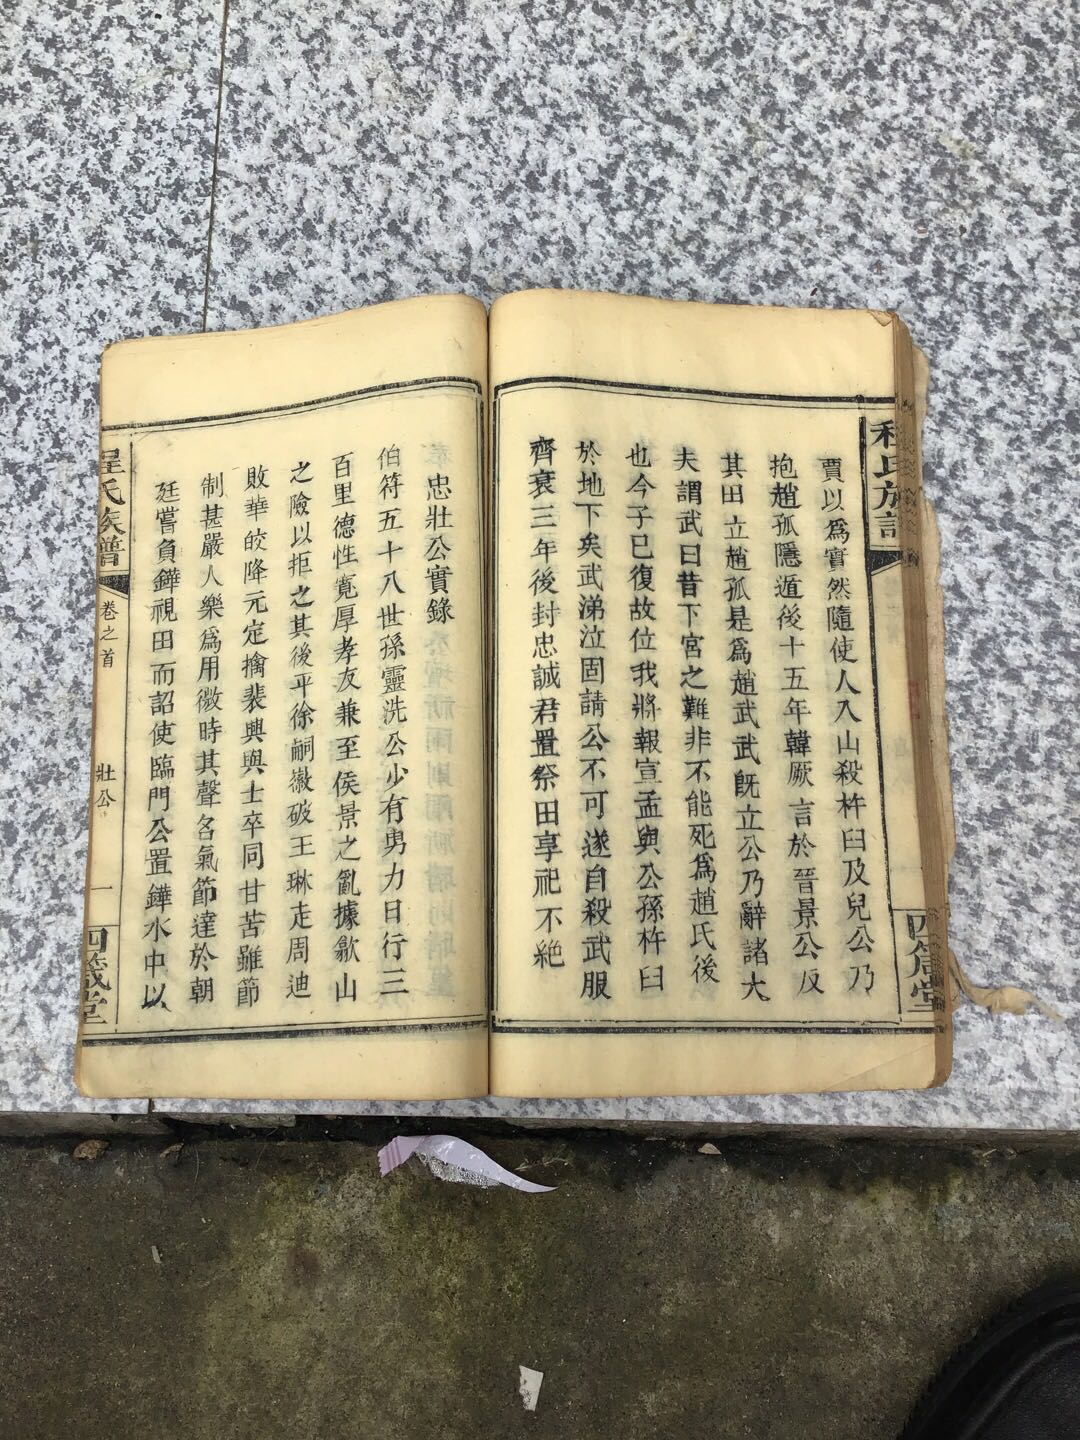 賈以爲實然隨使人入山殺杵臼及兒公乃
抱趙孤隱遁後十五年韓厥言於晉景公反
其田立趙孤是爲趙武武既立公乃辭諸大
夫謂武曰昔下宮之難非不能死爲趙氏後
也今子已復故位我將報宣孟與公孫杵臼
於地下矣武涕泣固請公不可遂自殺武服
齊衰三年後封忠誠君置祭田享祀不絶
忠壯公實錄
伯符五十八世孫靈洗公少有勇力日行三
百里德性寬厚孝友兼至侯景之亂據歙山
之險以拒之其後平徐嗣徽破王琳走周迪
敗華皎降元定擒裴興與士卒同甘苦雖節
制甚嚴人樂爲用微時其聲名氣節達於朝
廷嘗負鏵視田而詔使臨門公置鏵水中以
程氏族譜
卷之首
壯公
一
四箴堂